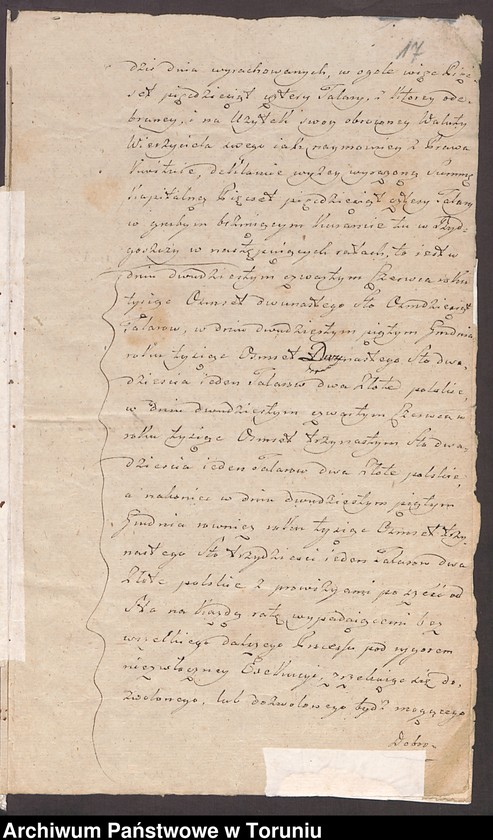 17
dziś dnia wyrachowanych, w ogóle więc Pięć
set pięćdziesiąt cztery Talary, z ktorey ode
braney, i na Użytek swoy obroconey Waluty
Wierzyciela swego iak naymocniey z Prawa
kwituie, deklaruie wyżey wyrażoną Summę
Kapitalną Pięćset pięćdziesiąt cztery Talary
w grubym brzmiącym Kurancie tu w Byd-
goszczy w następuiących ratach, to iest w
dniu dwudziestym czwartym Czerwca roku
tysiąc Ośmset dwunastego Sto Ośmdziesiąt
Talarow, w dniu dwudziestym piątym Grudnia
roku tysiąc Ośmset Dwunastego Sto dwa-
dzieścia ieden Talarow dwa Złote polskie,
w dniu dwudziestym czwartym Czerwca
roku tysiąc Ośmset trzynastym Sto dwa-
dzieścia ieden Talarow dwa Złote polskie,
a nakoniec w dniu dwudziestym piątym
Grudnia rownież roku tysiąc Ośmset trzy-
nastego Sto trzydzieści ieden Talarow dwa
Złote polskie z prowizyami po sześć od
Sta na każdą ratę wypadaiącemi bez
wszelkiego dalszego Processu pod rygorem
niezwłoczney Exekucyi, zrzekaiąc się do-
zwolonego, lub dozwolonego bydź mogącego
Dobro-
Archiwum Państwowe w Toruniu